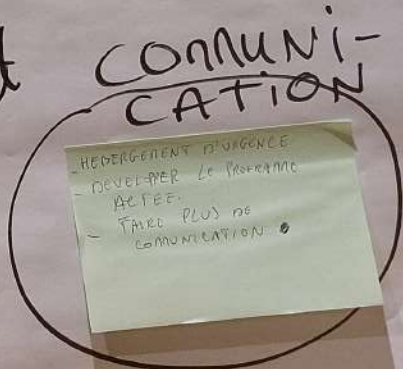 COMMUNI-
CATION
- HEBERGEMENT D'URGENCE
- DEVELOPPER LE PROGRAMME
ACTEE.
- FAIRE PLUS DE
COMUNICATION